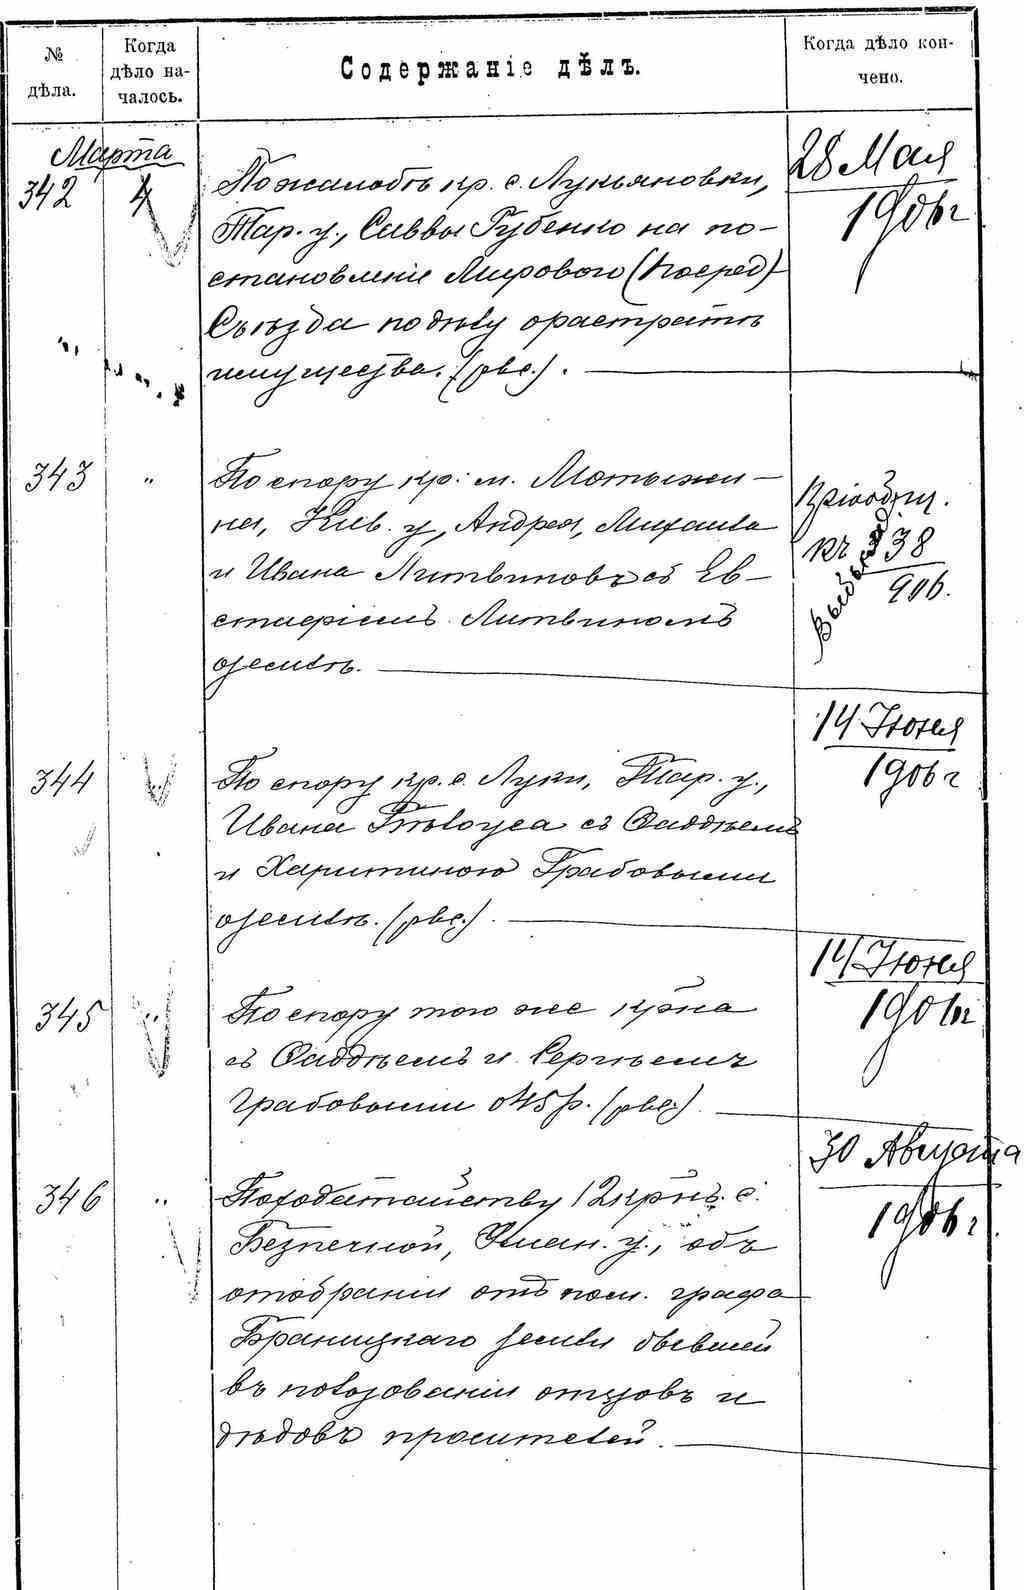 № дѣла.
Когда дѣло на-
чалось.
Содержаніе дѣлъ.
Когда дѣло кон-
чено.
Марта
342 4 По жалобѣ кр. с. Лукьяновки,
Тар. у., Саввы Губенко на по-
становленіе Мирового (Посред)
Съѣзда по дѣлу о растратѣ
имущества. (рвс.).
28 Мая
1906 г
343 " По спору кр. м. Мотыжи-
на, Кіев. у., Андрея, Михаила
и Ивана Литвиновъ съ Ев-
стафіемъ Литвиномъ
о землѣ.
Пріобщ.
къ 338
906.
344 По спору кр. с. Луки, Тар. у.,
Ивана съ Фаддѣемъ
и Харитиною Грабовыми
о землѣ. (рвс.).
14 Іюня
1906 г
345 " По спору того же кр-на
съ Фаддѣемъ и Сергѣемъ
Грабовыми о 45 р. (рвс.).
14 Іюня
1906 г
346 " По ходатайству 12 кр-нъ с.
Безпечной, у., объ
отобраніи отъ пом. графа
Браницкаго земли бывшей
въ пользованіи отцовъ и
дѣдовъ просителей.
30 Августа
1906 г.